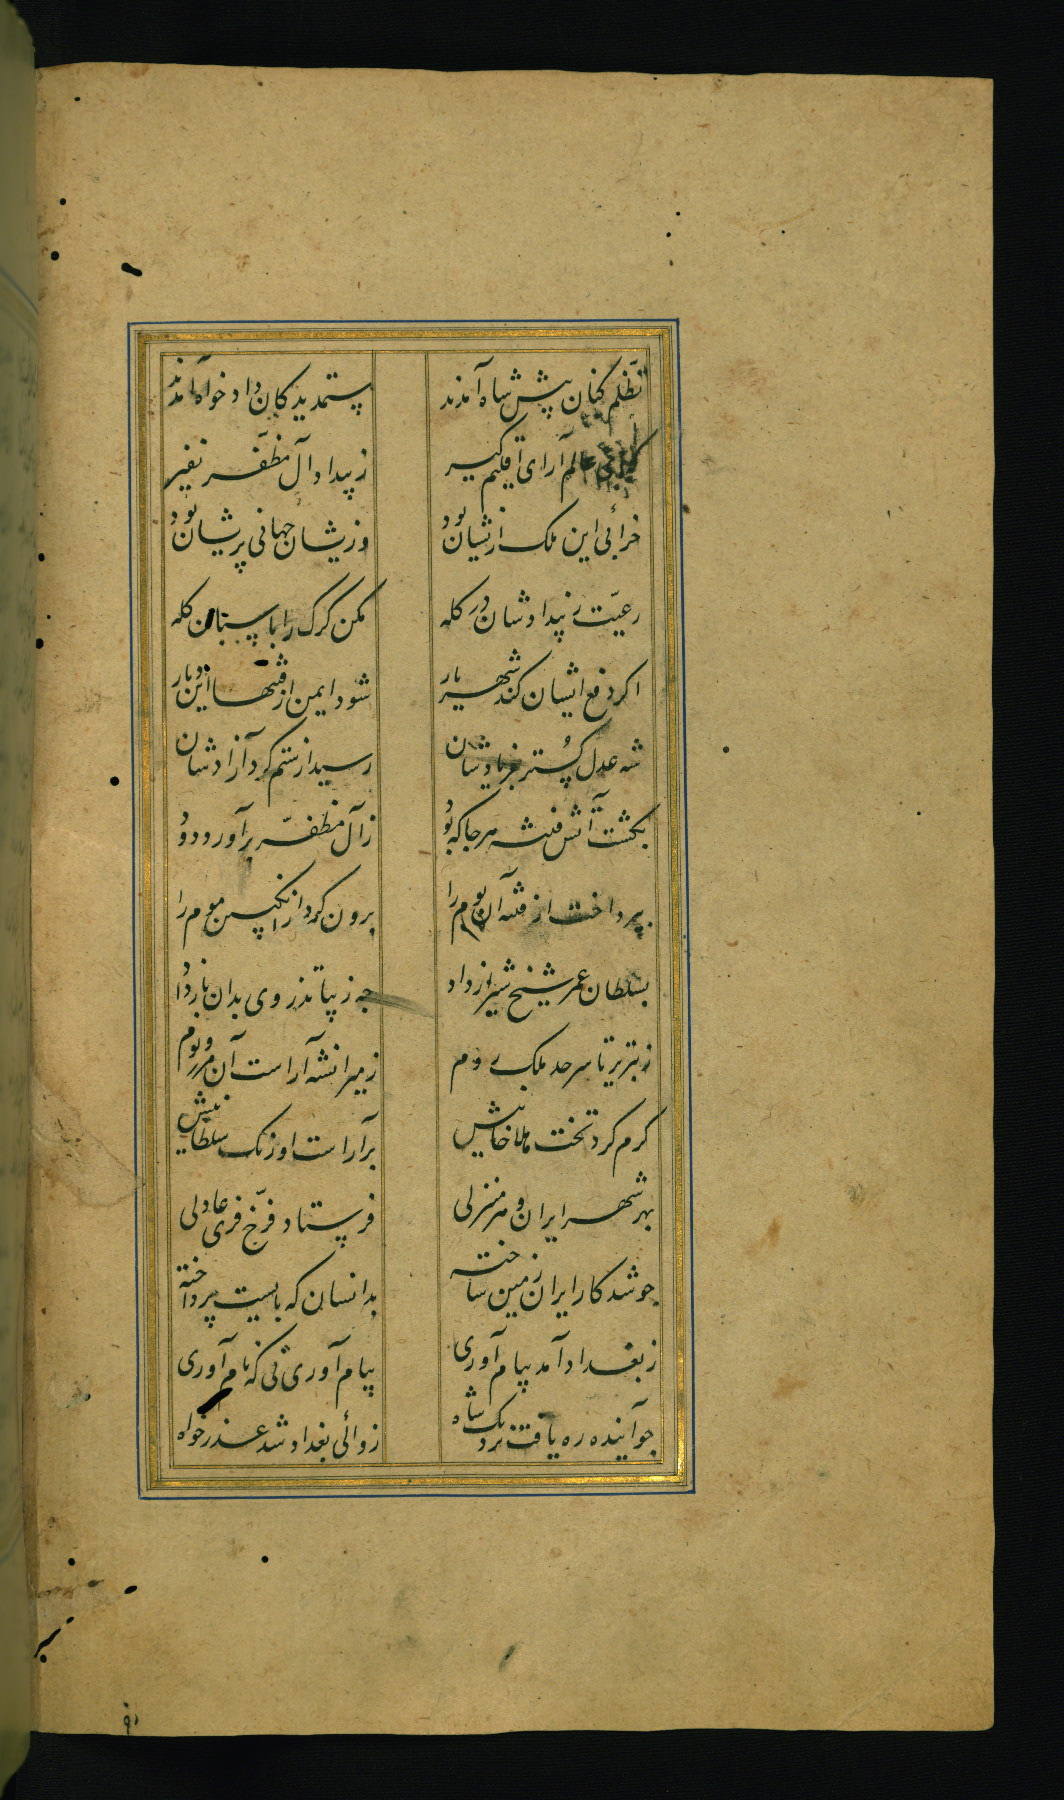 تظلم کنان پیش شاه آمدند ستمدیدکان دادخواه آمدند
عالم آرای اقلیم کیر ز بیداد آل مظفر نفیر
خرابی این ملک ازیشان بود وزیشان جهانی پریشان بود
رعیت ز بیدادشان در کله مکن کرک را پاسبان کله
اکر دفع ایشان کند شهریار شود ایمن از فتنها این دیار
شه عدل کستر بفریادشان رسید از ستم کرد آزادشان
بکشت آتش فتنه هر جا که بود ز آل مظفر برآورد دود
بپرداخت از فتنه آن بوم را برون کرد از انکبین موم را
بسلطان عمر شیخ شیراز داد چه زیبا تذروی بدان باز داد
ز تبریز تا سرحد ملک روم ز میرانشه آراست آن مرز و بوم
کرم کرد تخت هلاخانیش برآراست اورنک سلطانیش
بهر شهر ایران و هر منزلی فرستاد فرخ فری عادلی
چو شد کار ایران زمین ساخته بدانسان که بایست پرداخته
ز بغداد آمد پیام آوری پیام آوری نی که نام آوری
چو آینده ره یافت نزدیک شاه ز والی بغداد شد عذرخواه